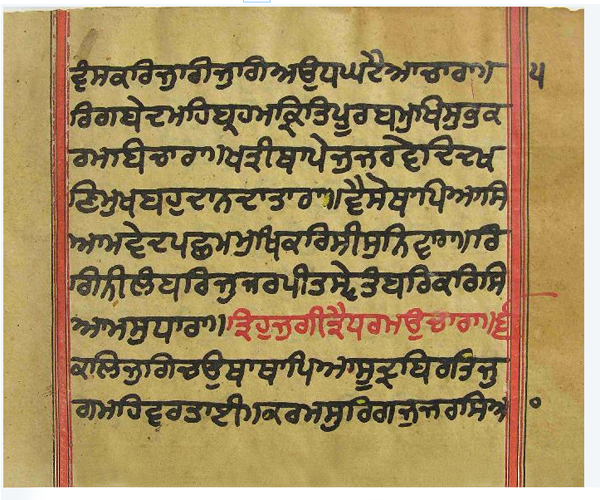 ਵੰਸਕਰਿਜੁਗਿਜੁਗਿਅਉਧਘਟੈਆਚਾਰਾ॥ ੫
ਰਿਗਬੇਦਮਹਿਬ੍ਰਹਮਕ੍ਰਿਤਿਪੂਰਬਮੁਖਿਸੁਭਕ
ਰਮਬਿਚਾਰਾ॥ਖਤ੍ਰੀਥਾਪੇਜੁਜਰਵੇਦਿਦਖ
ਣਿਮੁਖਬਹੁਦਾਨਦਾਤਾਰਾ॥ਵੈਸੋਥਾਪਿਆਸਿ
ਆਮਵੇਦਪਛਮਮੁਖਿਕਰਿਸੀਸੁਨਿਵਾਰਾ॥ਰਿ
ਗਿਨੀਲੰਬਰਿਜੁਜਰਪੀਤਸ੍ਵੇਤੰਬਰਿਕਰਿਸਿ
ਆਮਸੁਧਾਰਾ॥ਤ੍ਰਿਹੁਜੁਗੀਤ੍ਰੈਧਰਮਉਚਾਰਾ॥੬
ਕਲਿਜੁਗਿਚਉਥਾਥਾਪਿਆਸੂਦ੍ਰਬਿਰਤਿਜੁ
ਗਮਹਿਵਰਤਾਈ॥ਕਰਮਸੁਰਿਗਜੁਜਰਸਿਅ ੦